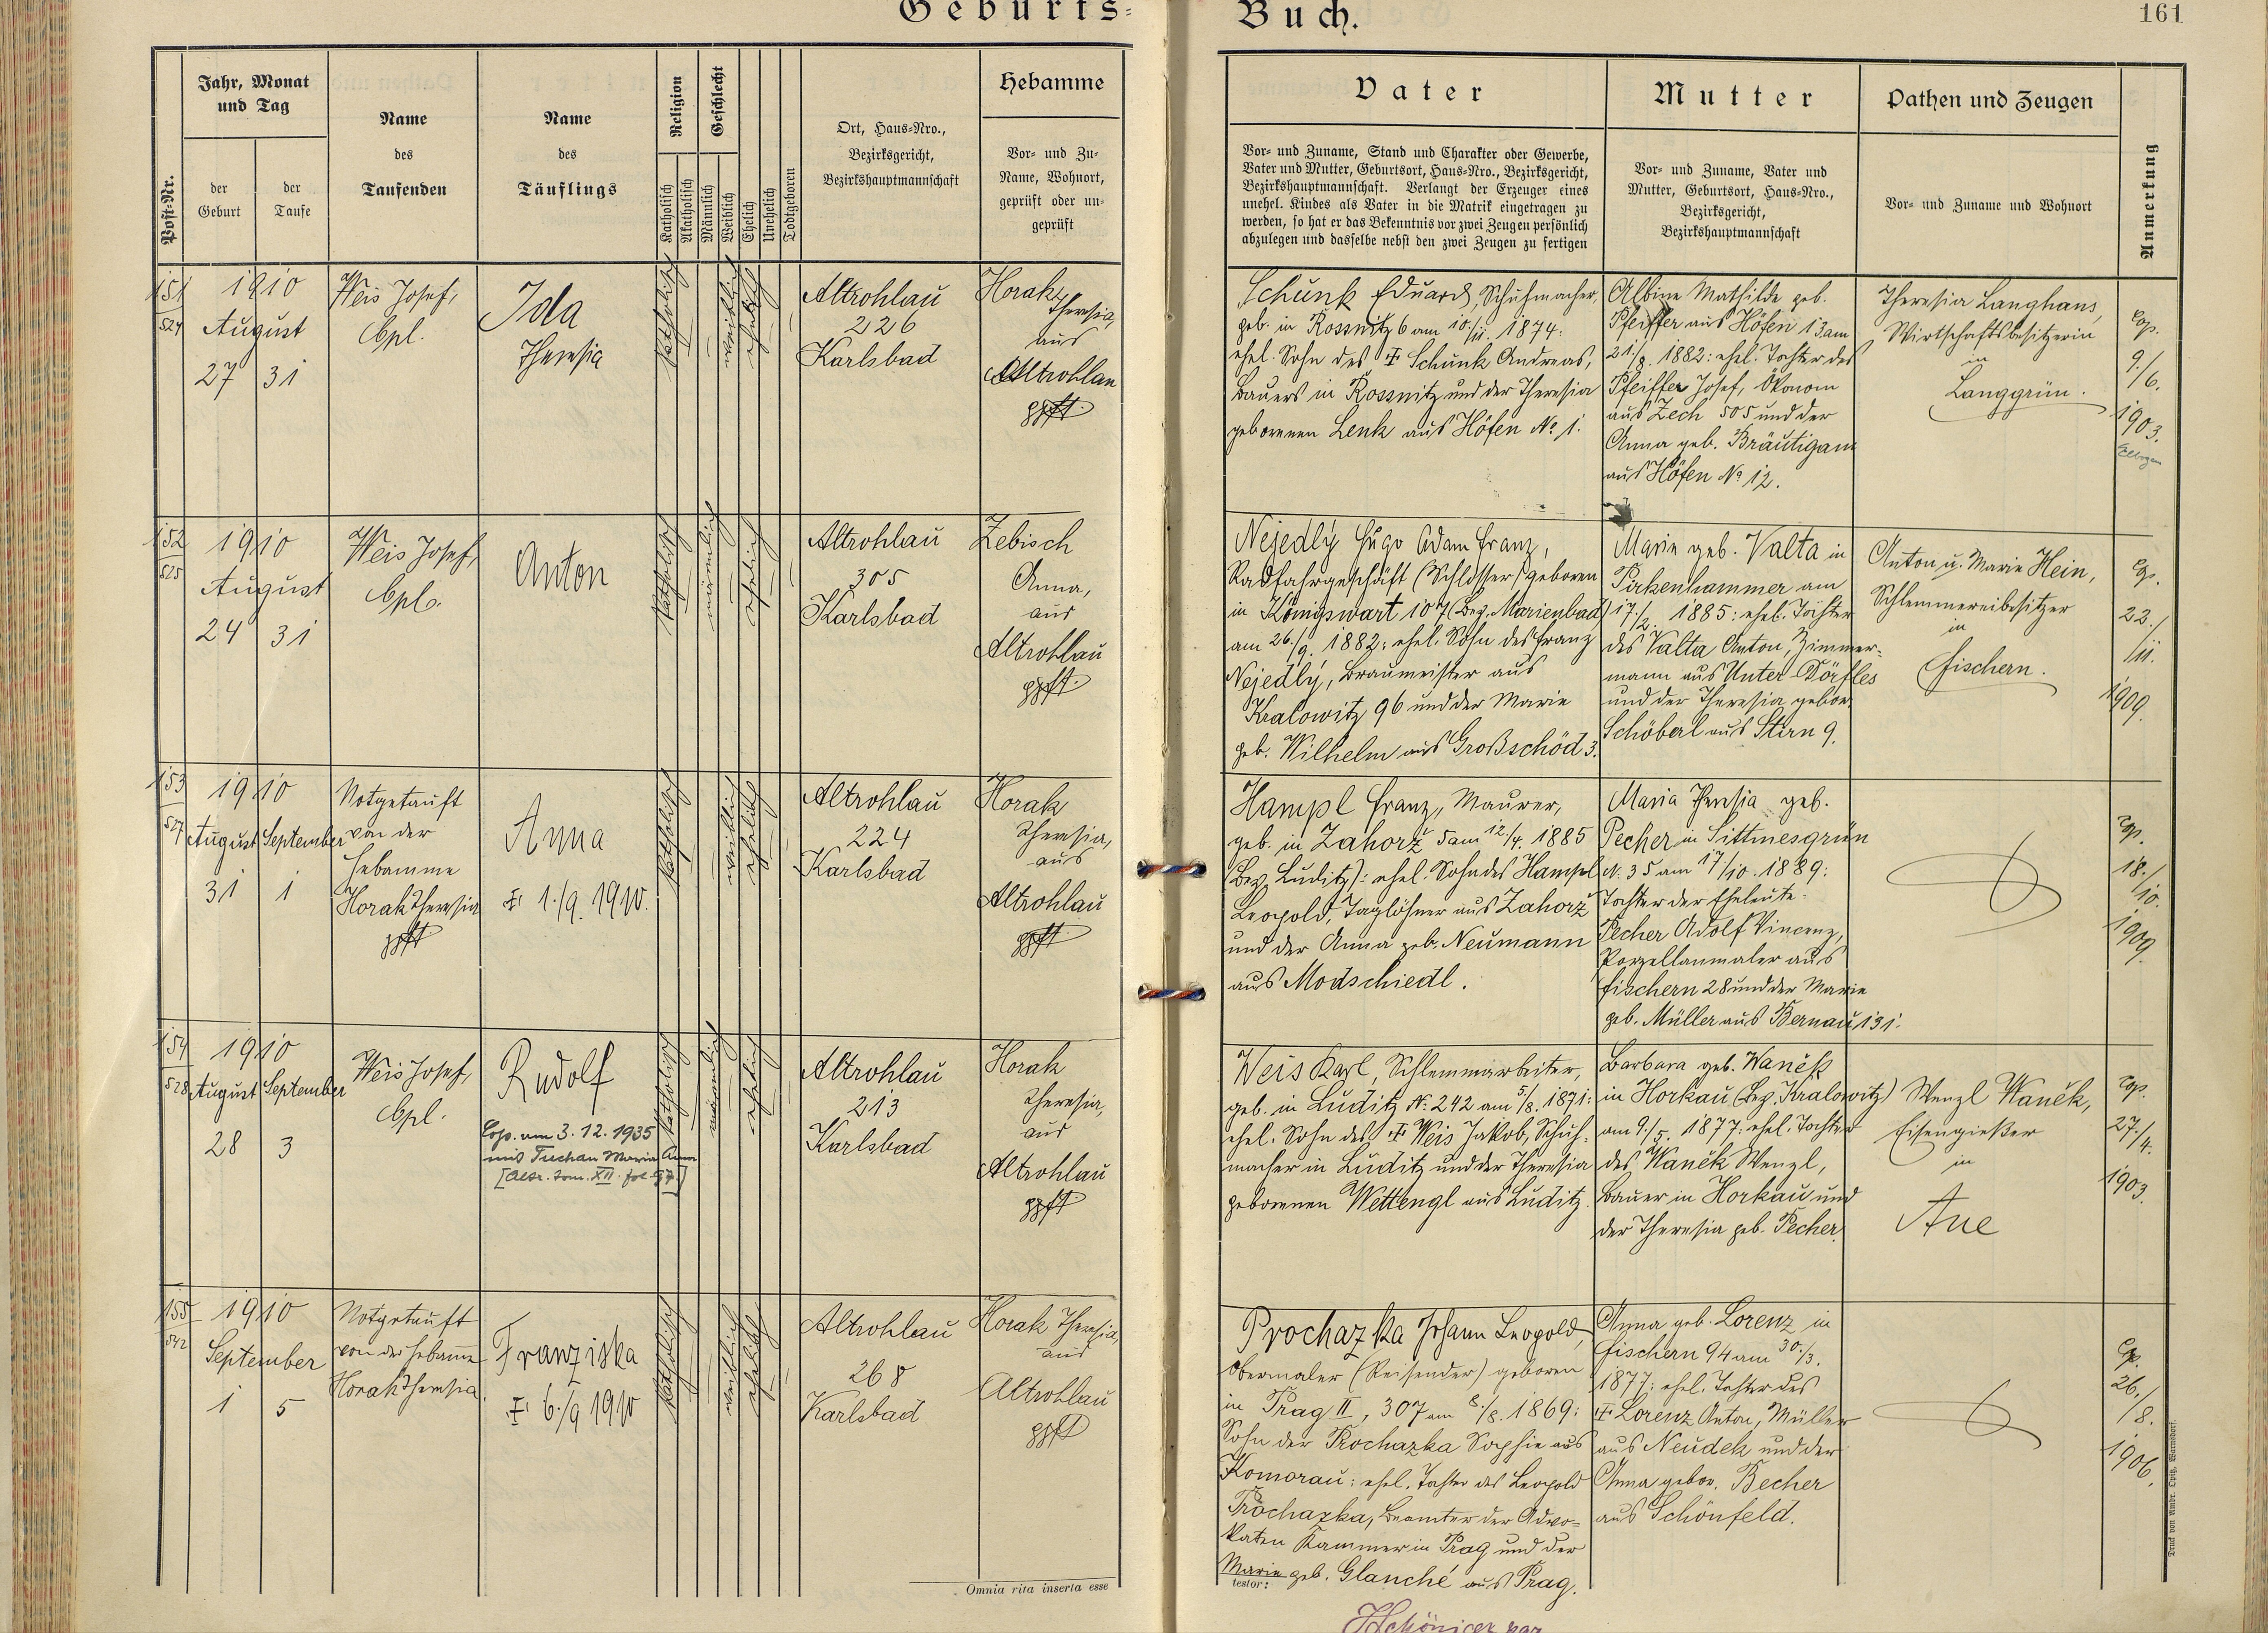 Geburts-
Buch.
161
Post-Nr.
Jahr, Monat
und Tag
der
Geburt
der
Taufe
Name
des
Taufenden
Name
des
Täuflings
Religion
Katholisch
Akatholisch
Geschlecht
Männlich
Weiblich
Ehelich
Unehelich
Todtgeboren
Ort, Haus-Nro.,
Bezirksgericht,
Bezirkshauptmannschaft
Hebamme
Vor- und Zu-
Name, Wohnort,
geprüft oder un-
geprüft
Vater
Vor- und Zuname, Stand und Charakter oder Gewerbe,
Vater und Mutter, Geburtsort, Haus-Nro., Bezirksgericht,
Bezirkshauptmannschaft. Verlangt der Erzeuger eines
unehel. Kindes als Vater in die Matrik eingetragen zu
werden, so hat er das Bekenntnis vor zwei Zeugen persönlich
abzulegen und dasselbe nebst den zwei Zeugen zu fertigen
Mutter
Vor- und Zuname, Vater und
Mutter, Geburtsort, Haus-Nro.,
Bezirksgericht,
Bezirkshauptmannschaft
Pathen und Zeugen
Vor- und Zuname und Wohnort
Anmerkung
151
524
1910
August
27 31
Weis Josef,
Cpl.
Ida
Theresia
katholisch
weiblich
ehelich
Altrohlau
226
Karlsbad
Horak
Theresia,
aus
Altrohlau
gpft.
Schunk Eduard, Schuhmacher,
geb. in Rossnitz 6 am 10./11. 1874:
ehel. Sohn des ✝ Schunk Andreas,
Bauers in Rossnitz und der Theresia
geborenen Lenk aus Höfen No 1.
Albine Mathilde geb.
Pfeiffer aus Höfen 13 am
21./8. 1882: ehel. Tochter des
Pfeiffer Josef, Ökonom
aus Zech 505 und der
Anna geb. Bräutigam
aus Höfen No 12.
Theresia Langhans,
Wirtschaftsbesitzerin
in
Langgrün.
Cop.
9./6.
1903.
Elbogen
152
525
1910
August
24 31
Weis Josef,
Cpl.
Anton
katholisch
männlich
ehelich
Altrohlau
305
Karlsbad
Zebisch
Anna,
aus
Altrohlau
gpft.
Nejedlý Hugo Adam Franz,
Radfahrgeschäft (Schlosser) geboren
in Königswart 107 (Bez. Marienbad)
am 26./9. 1882: ehel. Sohn des Franz
Nejedlý, Braumeister aus
Kralowitz 96 und der Marie
geb. Wilhelm aus Großschöd 3.
Marie geb. Valta in
Pirkenhammer am
17./2. 1885: ehel. Tochter
des Valta Anton, Zimmer-
mann aus Unter-Dörfles
und der Theresia gebor.
Schöberl aus Stirn 9.
Anton u. Marie Hein,
Schlemmereibesitzer
in
Fischern.
Cop.
23./
/11.
1909.
153
527
1910
August September
31 1
Notgetauft
von der
Hebamme
Horak Theresia
gpft
Anna
✝ 1./9. 1910.
katholisch
weiblich
ehelich
Altrohlau
224
Karlsbad
Horak
Theresia,
aus
Altrohlau
gpft.
Hampl Franz, Maurer,
geb. in Zahorž 5 am 12./4. 1885
(Bez. Luditz): ehel. Sohn des Hampl
Leopold, Taglöhner aus Zahorž
und der Anna geb. Neumann
aus Modschiedl.
Maria Theresia geb.
Pecher in Sittmesgrün
N. 35 am 17./10. 1889:
Tochter der Eheleute
Pecher Adolf Vincenz,
Porzellanmaler aus
Fischern 28 und der Marie
geb. Müller aus Bernau 131.
Cop.
18./
/10.
1909.
154
528
1910
August September
28 3
Weis Josef,
Cpl.
Rudolf
Cop. am 3. 12. 1935
mit Tuchan Maria Anna
[Altr. tom. XII. fol. 97]
katholisch
männlich
ehelich
Altrohlau
213
Karlsbad
Horak
Theresia,
aus
Altrohlau
gpft
Weis Karl, Schlemmarbeiter,
geb. in Luditz N. 242 am 5./8. 1871:
ehel. Sohn des ✝ Weis Jakob, Schuh-
macher in Luditz und der Theresia
geborenen Wettengl aus Luditz.
Barbara geb. Wanĕk
in Horkau (Bez. Kralowitz)
am 9./5. 1877: ehel. Tochter
des Wanĕk Wenzl,
Bauer in Horkau und
der Theresia geb. Pecher.
Wenzl Wanĕk,
Eisengießer
in
Aue
Cop.
27./4.
1903.
155
542
1910
September
1 5
Notgetauft
von der Hebamme
Horak Theresia.
Franziska
✝ 6./9 1910
katholisch
weiblich
ehelich
Altrohlau
268
Karlsbad
Horak Theresia,
aus
Altrohlau
gpft
Prochazka Johann Leopold,
Obermaler (Reisender) geboren
in Prag II, 307 am 8./8. 1869:
Sohn der Prochazka Sophie aus
Komorau: ehel. Tochter des Leopold
Prochazka, Beamter der Advo-
katen Kammer in Prag und der
Marie geb. Glanché aus Prag.
Anna geb. Lorenz in
Fischern 94 am 30./3.
1877: ehel. Tochter des
✝ Lorenz Anton, Müller
aus Neudek und der
Anna gebor. Becher
aus Schönfeld.
Cop.
26./
/8.
1906.
Omnia rita inserta esse
testor:
Druck von Ambr. Opitz, Warnsdorf.